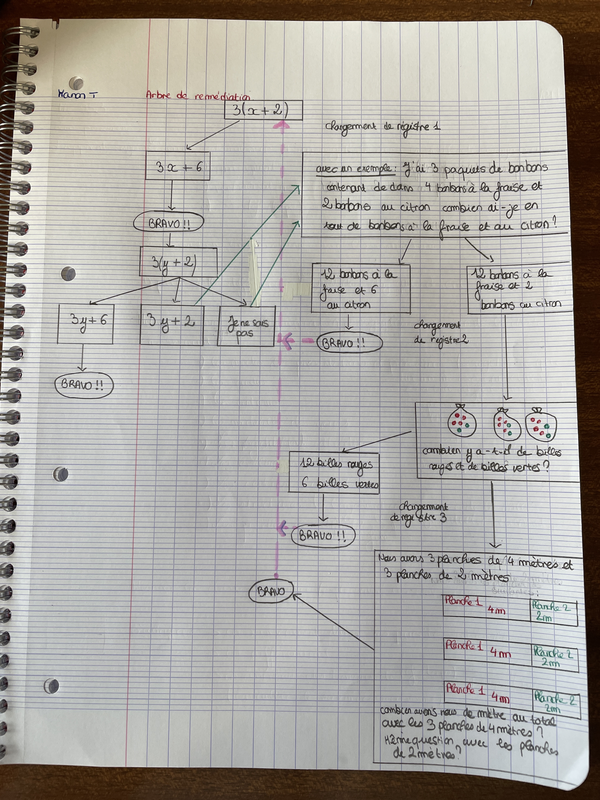 Manon T
Arbre de remédiation
3(x+2)
changement de régistre 1
3x+6
BRAVO!!
3(y+2)
3y+6
3y+2
Je ne sais
pas
BRAVO!!
avec un exemple: J'ai 3 paquets de bonbons
contenant de dans 4 bonbons à la fraise et
2 bonbons au citron combien ai-je en
tout de bonbons à la fraise et au citron?
12 bonbons à la
fraise et 6
au citron
12 bonbons à la
fraise et 2
bonbons au citron
BRAVO!!
changement
de registre 2
combien y a-t-il de billes
rouges et de billes vertes?
12 billes rouges
6 billes vertes
BRAVO!!
changement
de registre 3
BRAVO
Nous avons 3 planches de 4 mètres et
3 planches de 2 mètres
Planche 1 4m Planche 2
2m
Planche 1 4m Planche 2
2m
Planche 1 4m Planche 2
2m
combien avons nous de mètre au total
avec les 3 planches de 4 mètres?
Même question avec les planches
de 2 mètres?